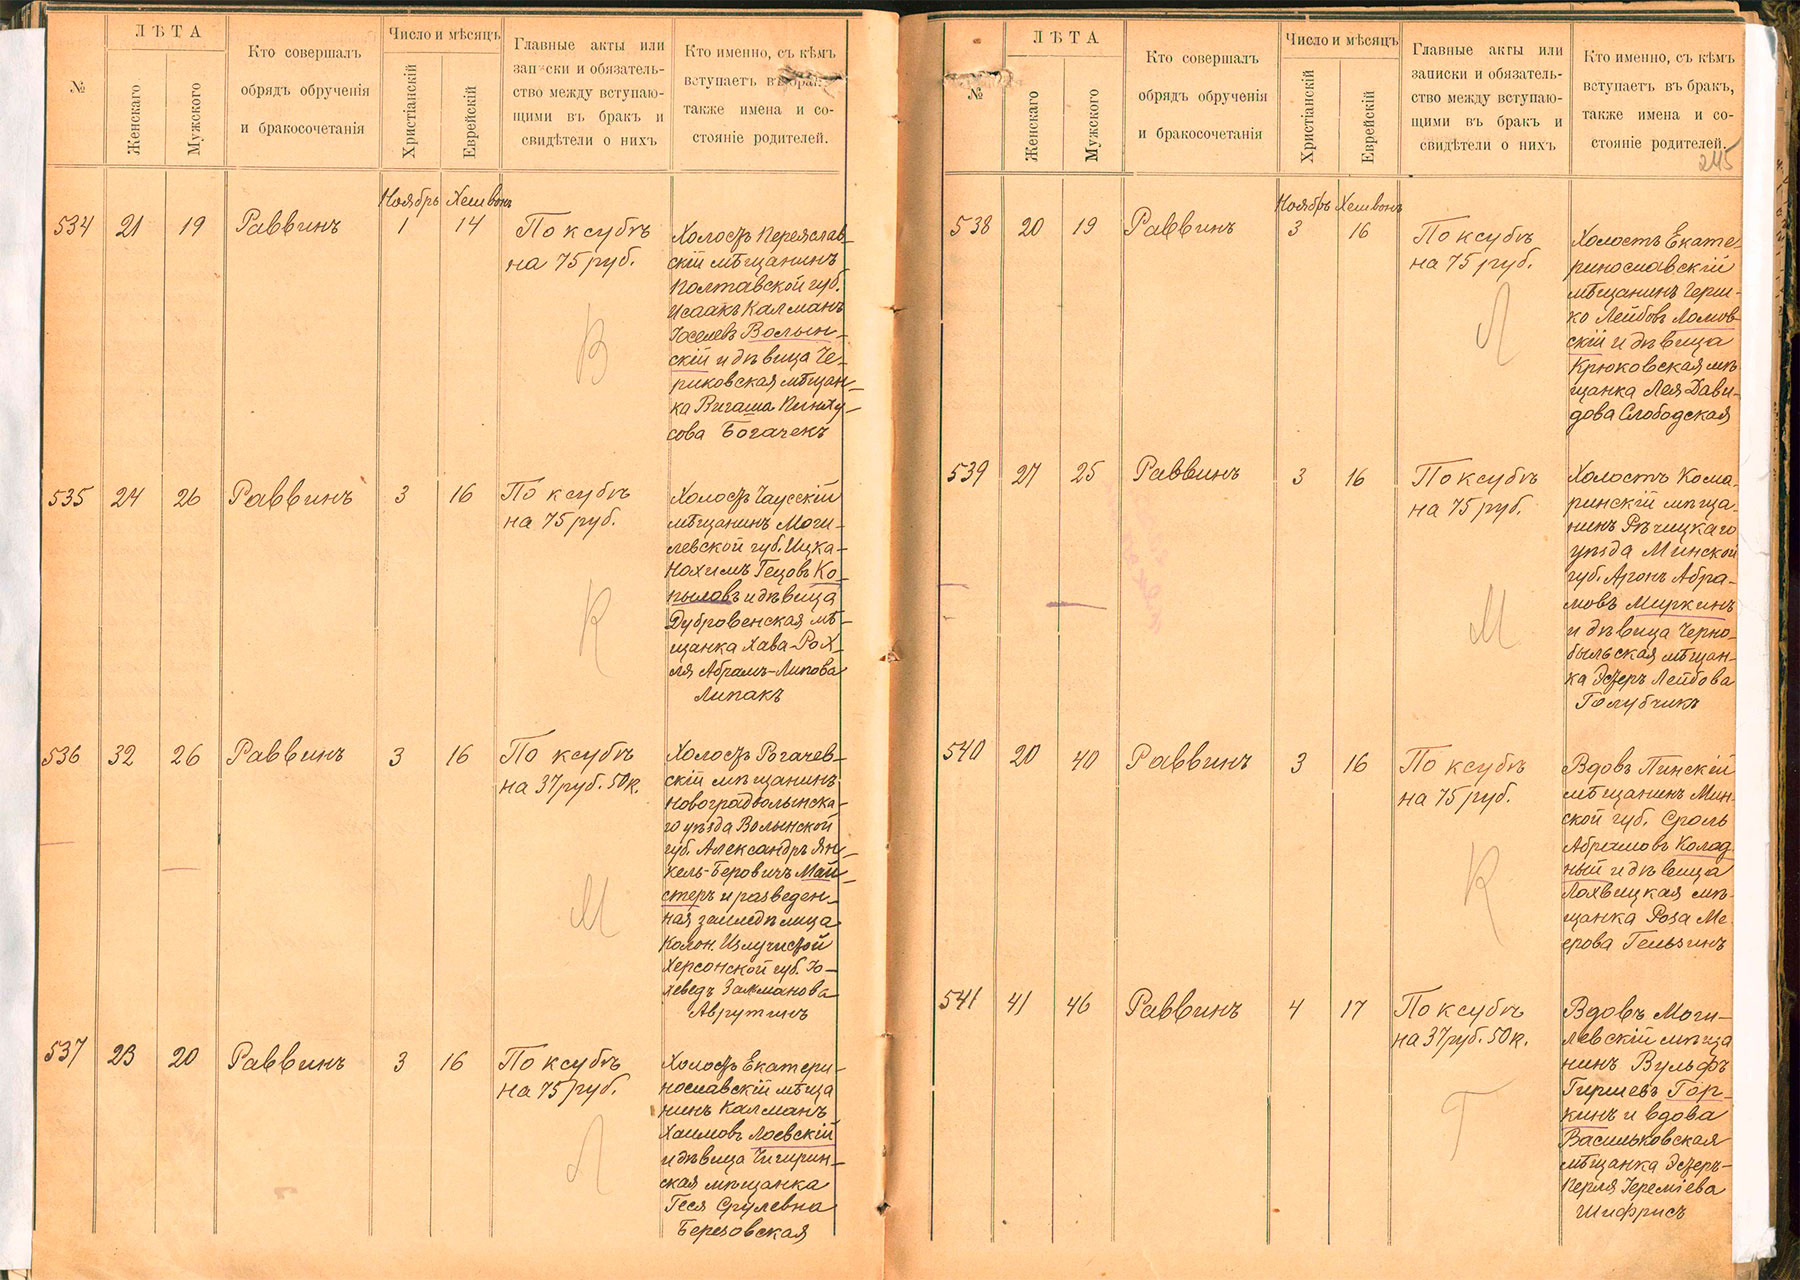 №
ЛѢТА
Женскаго
Мужского
Кто совершалъ
обрядъ обрученія
и бракосочетанія
Число и мѣсяцъ
Христіанскій
Еврейскій
Главные акты или
записки и обязатель-
ство между вступаю-
щими въ бракъ и
свидѣтели о нихъ
Кто именно, съ кѣмъ
вступаетъ въ бракъ,
также имена и со-
стояніе родителей.
Ноябрь Хешвонъ
534 21 19 Раввинъ 1 14
По ксубѣ
на 75 руб.
В
Холостъ Переяслав-
скій мѣщанинъ
Полтавской губ.
Исаакъ Калманъ
Іоселевъ Волын-
скій и дѣвица Че-
риковская мѣщан-
ка Вигаша Пинху-
сова Богачекъ
535 24 26 Раввинъ 3 16
По ксубѣ
на 75 руб.
К
Холостъ Чаусскій
мѣщанинъ Моги-
левской губ. Ицка-
Нохимъ Гецовъ Ко-
пыловъ и дѣвица
Дубровенская мѣ-
щанка Хава-Рох-
ля Абрамъ-Липова
Липакъ
536 32 26 Раввинъ 3 16
По ксубѣ
на 37 руб. 50 к.
М
Холостъ Рогачев-
скій мѣщанинъ
Новоградволынска-
го уѣзда Волынской
губ. Александръ Ян-
кель-Беровичъ Май-
стеръ и разведен-
ная землед лица
Колон. Излучистой
Херсонской губ. Іо-
хеведъ Залманова
Аврутинъ
537 23 20 Раввинъ 3 16
По ксубѣ
на 75 руб.
Л
Холостъ Екатери-
нославскій мѣща
нинъ Калманъ
Хаимовъ Лоевскій
и дѣвица Чигирин-
ская мѣщанка
Геся Срулевна
Березовская
№
ЛѢТА
Женскаго
Мужского
Кто совершалъ
обрядъ обрученія
и бракосочетанія
Число и мѣсяцъ
Христіанскій
Еврейскій
Главные акты или
записки и обязатель-
ство между вступаю-
щими въ бракъ и
свидѣтели о нихъ
Кто именно, съ кѣмъ
вступаетъ въ бракъ,
также имена и со-
стояніе родителей.
245
Ноябрь Хешвонъ
538 20 19 Раввинъ 3 16
По ксубѣ
на 75 руб.
Л
Холостъ Екате-
ринославскій
мѣщанинъ Герш-
ко Лейбовъ Ломов-
скій и дѣвица
Крюковская мѣ-
щанка Лея Дави-
дова Слободская
539 27 25 Раввинъ 3 16
По ксубѣ
на 75 руб.
М
Холостъ Кома-
ринскій мѣща-
нинъ Рѣчицкаго
уѣзда Минской
губ. Аронъ Абра-
мовъ Миркинъ
и дѣвица Черно-
быльская мѣщан-
ка Эстеръ Лейбова
Голубчикъ
540 20 40 Раввинъ 3 16
По ксубѣ
на 75 руб.
К
Вдовъ Пинскій
мѣщанинъ Мин-
ской губ. Сроль
Абрамовъ Колад-
ный и дѣвица
Лохвицкая мѣ-
щанка Роза Ме-
ерова Гельзинъ
541 41 46 Раввинъ 4 17
По ксубѣ
на 37 руб. 50 к.
Г
Вдовъ Моги-
левскій мѣща
нинъ Вульфъ
Гиршевъ Гор-
кинъ и вдова
Васильковская
мѣщанка Эстеръ-
Перля Іереміева
Шифрисъ